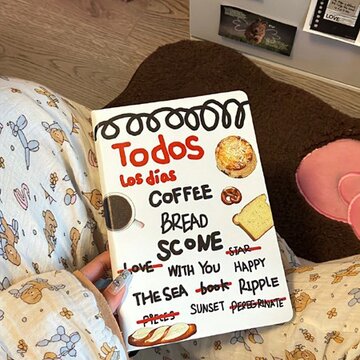 Todos
los días
COFFEE
BREAD
SCONE
STAR
LOVE WITH YOU HAPPY
THE SEA book RIPPLE
PIECES SUNSET PEREGRINATE
LOVE